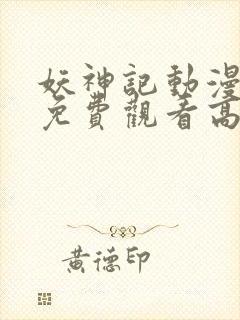 妖神記動漫
免費觀看高
黃德印